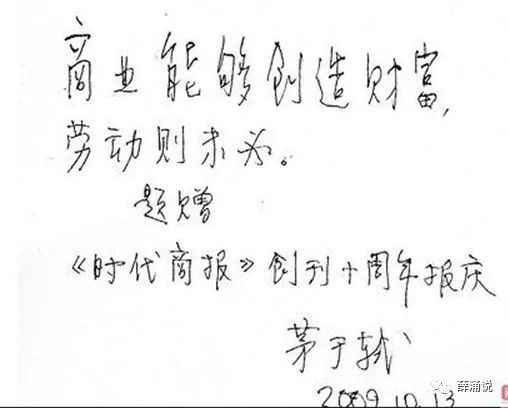 商业能够创造财富，
劳动则未必。
题赠
《时代商报》创刊十周年报庆
茅于轼
2009.10.13
薛涌说